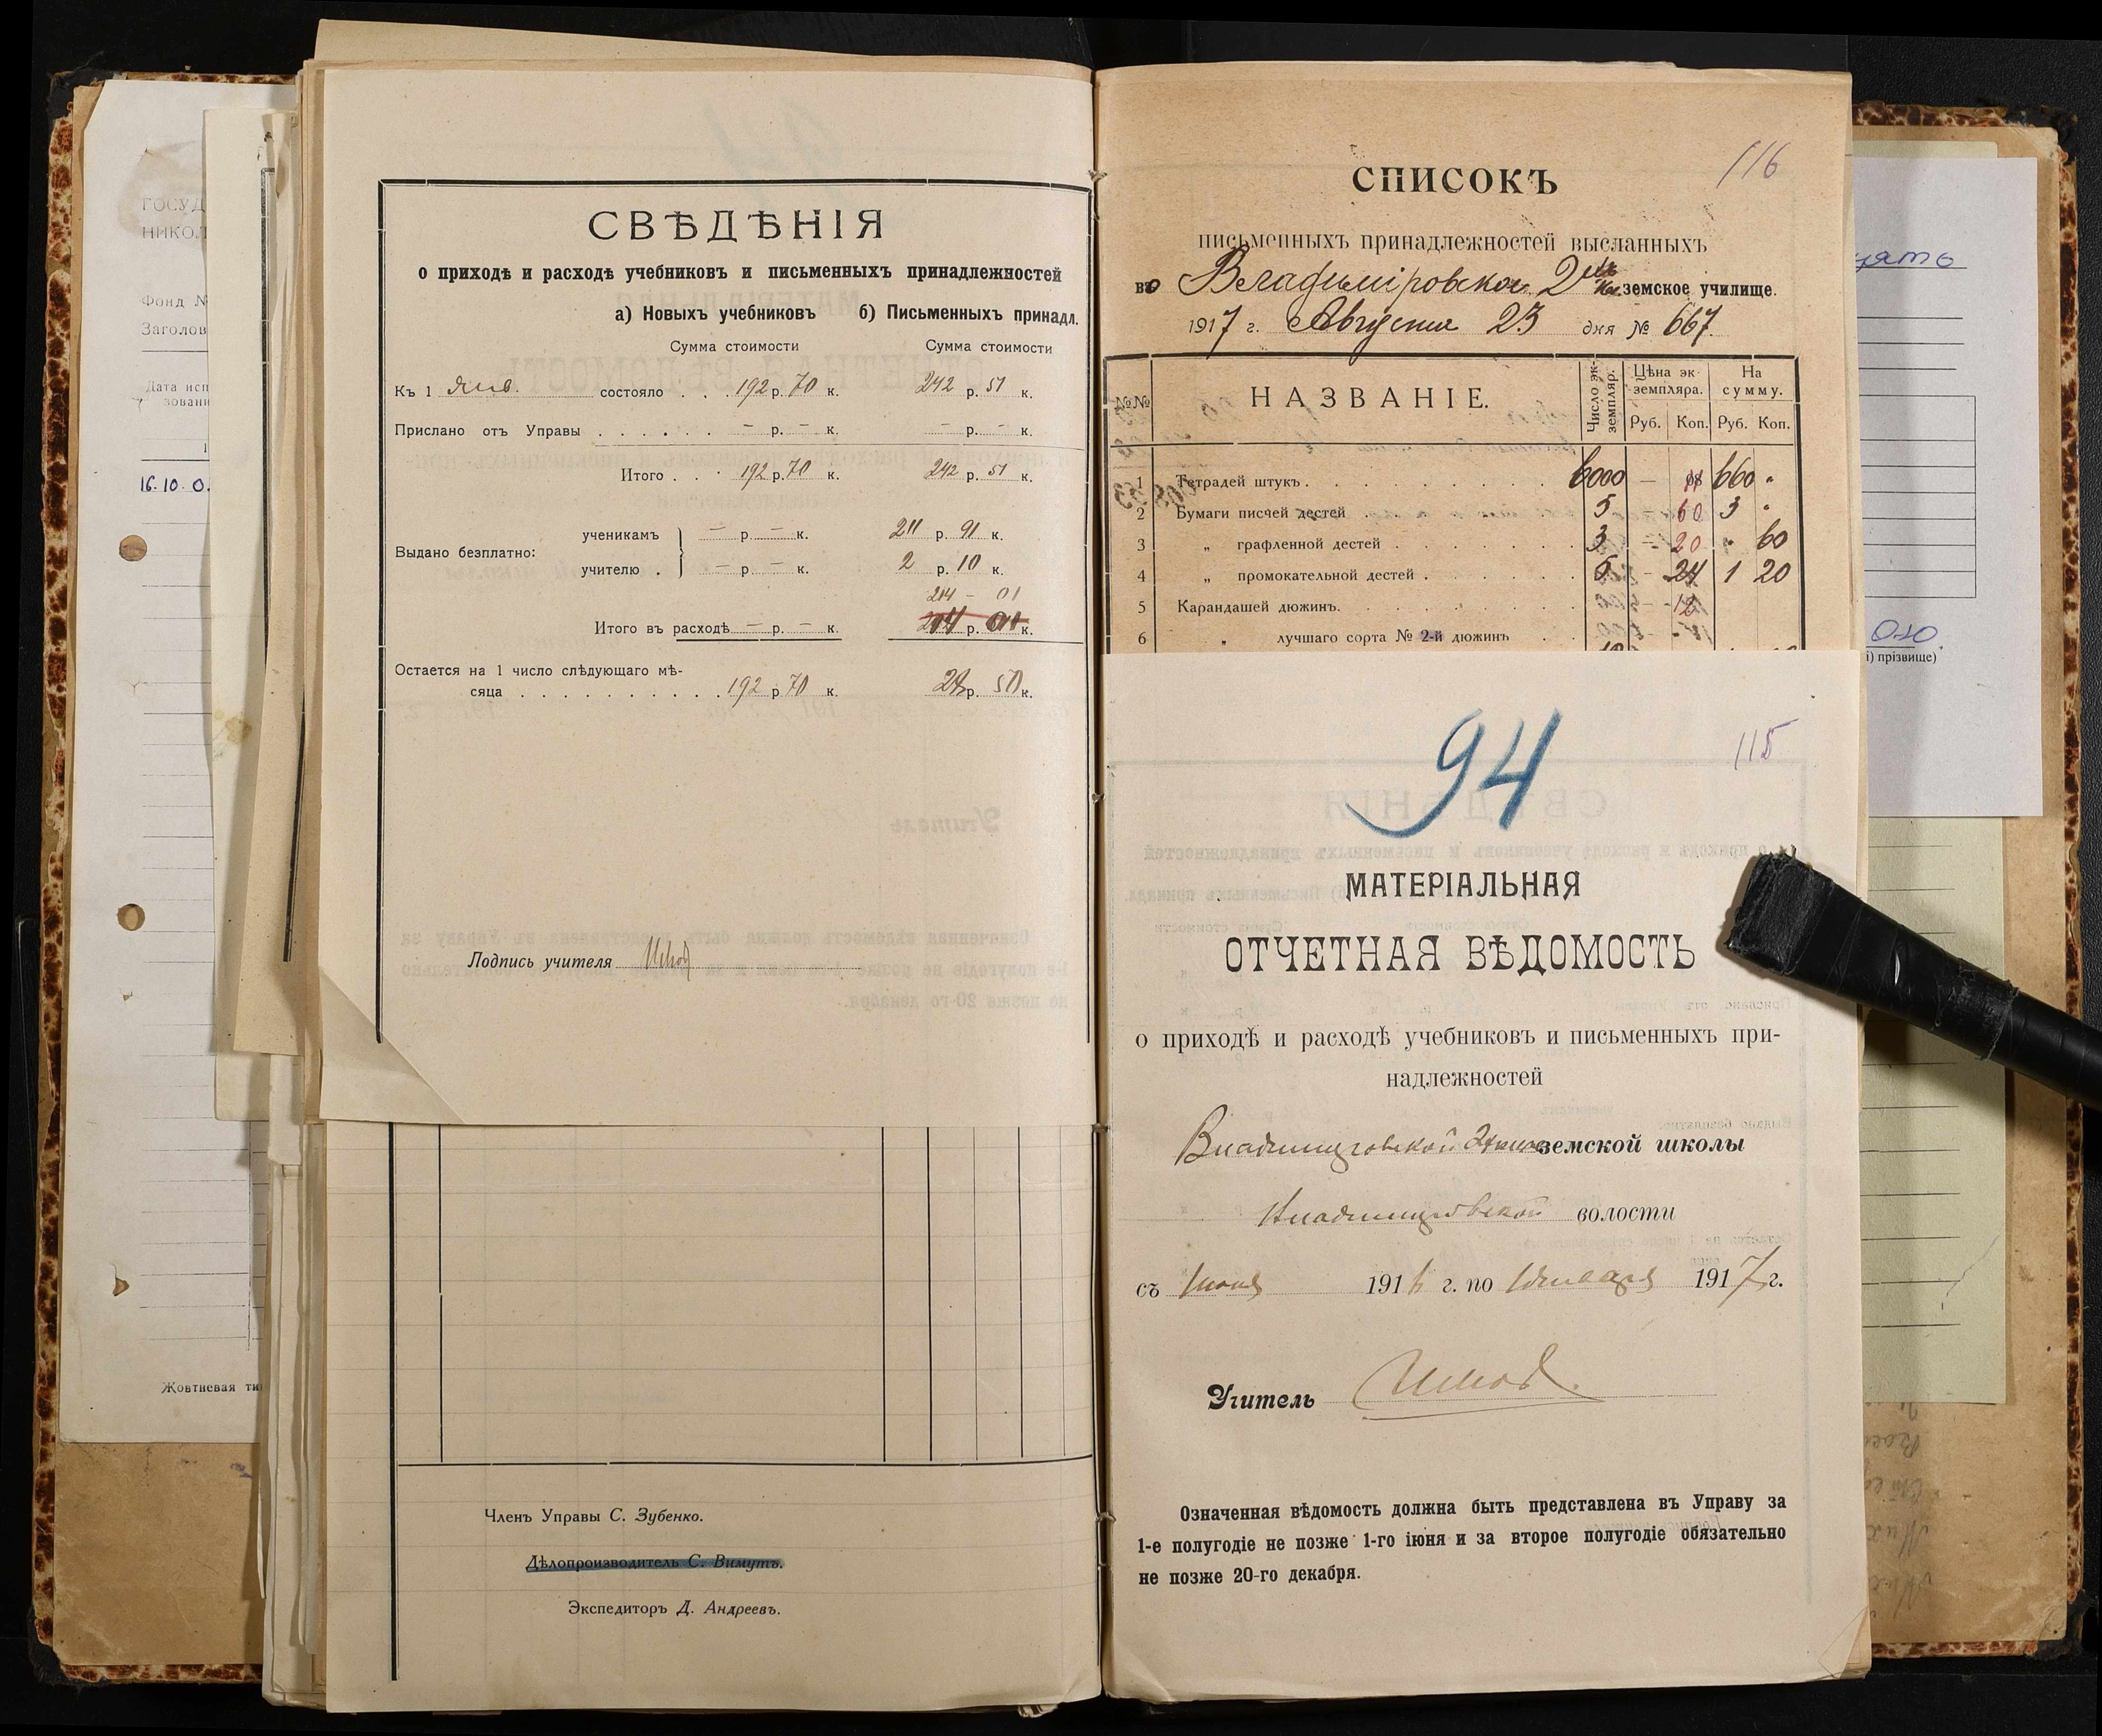 СВѢДѢНІЯ
о приходѣ и расходѣ учебниковъ и письменныхъ принадлежностей
а) Новыхъ учебниковъ б) Письменныхъ принадл.
Сумма стоимости Сумма стоимости
Къ 1 Янв. состояло . . . 192 р. 70 к. 242 р. 51 к.
Прислано отъ Управы . . . . . . – р. – к. – р. – к.
Итого . . . 192 р. 70 к. 242 р. 51 к.
Выдано безплатно:
ученикамъ – р. – к. 211 р. 91 к.
учителю . – р. – к. 2 р. 10 к.
214 – 01
Итого въ расходѣ – р. – к. р. к.
Остается на 1 число слѣдующаго мѣ-
сяца . . . . . . . . . . 192 р. 70 к. 28 р. 50 к.
Подпись учителя
Членъ Управы С. Зубенко.
Дѣлопроизводитель С. Вимутъ.
Экспедиторъ Д. Андреевъ.
116
СПИСОКЪ
письменныхъ принадлежностей высланныхъ
во Владимiровское 2 кл. земское училище.
1917 г. Августа 23 дня № 667
№№ НАЗВАНІЕ. Число эк-земпляр. Цѣна эк-земпляра. На сумму.
Руб. Коп. Руб. Коп.
1 Тетрадей штукъ . . . . . . . . . 6000 – 11 660 "
2 Бумаги писчей дестей . . . . . . 5 – 60 3 "
3 „ графленной дестей . . . . . . 3 – 20 " 60
4 „ промокательной дестей . . . . . . 5 – 24 1 20
5 Карандашей дюжинъ. . . . . . . .
6 „ лучшаго сорта № 2-й дюжинъ . .
94
115
МАТЕРІАЛЬНАЯ
ОТЧЕТНАЯ ВѢДОМОСТЬ
о приходѣ и расходѣ учебниковъ и письменныхъ при-
надлежностей
Владимировской 2 земской школы
Владимировской волости
съ Iюня 1916 г. по Января 1917 г.
Учитель
Означенная вѣдомость должна быть представлена въ Управу за
1-е полугодіе не позже 1-го іюня и за второе полугодіе обязательно
не позже 20-го декабря.
ГОСУД
НИКОЛ
Фонд №
Заголов
Дата исп
зовани
16.10.0.
Жовтневая ти
і) прізвище)